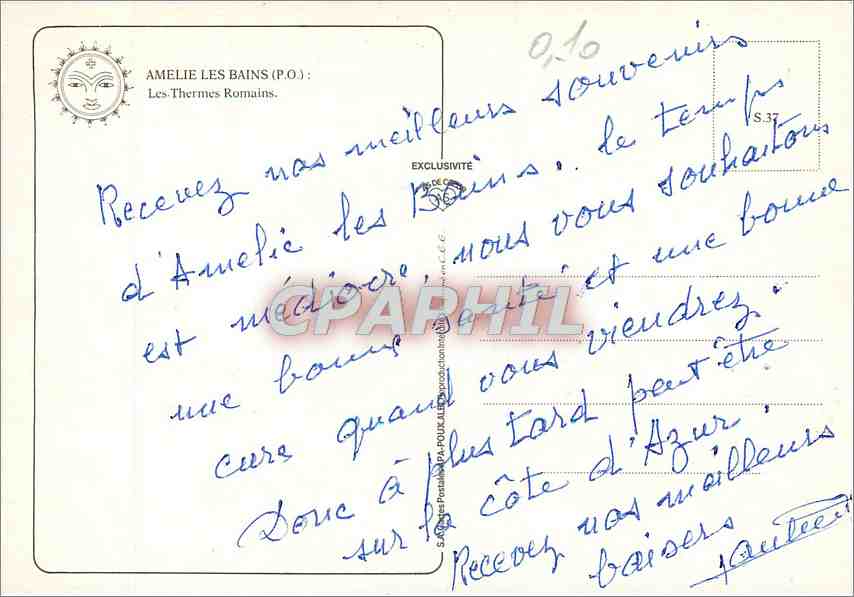 0,10
AMELIE LES BAINS (P.O.) :
Les Thermes Romains.
S.37
EXCLUSIVITÉ
Recevez nos meilleurs souvenirs
d'Amelie les Bains. le temps
est médiocre, nous vous souhaitons
une bonne santé et une bonne
cure quand vous viendrez.
Donc à plus tard peut être
sur la côte d'Azur.
Recevez nos meilleurs
baisers
CPAPHIL